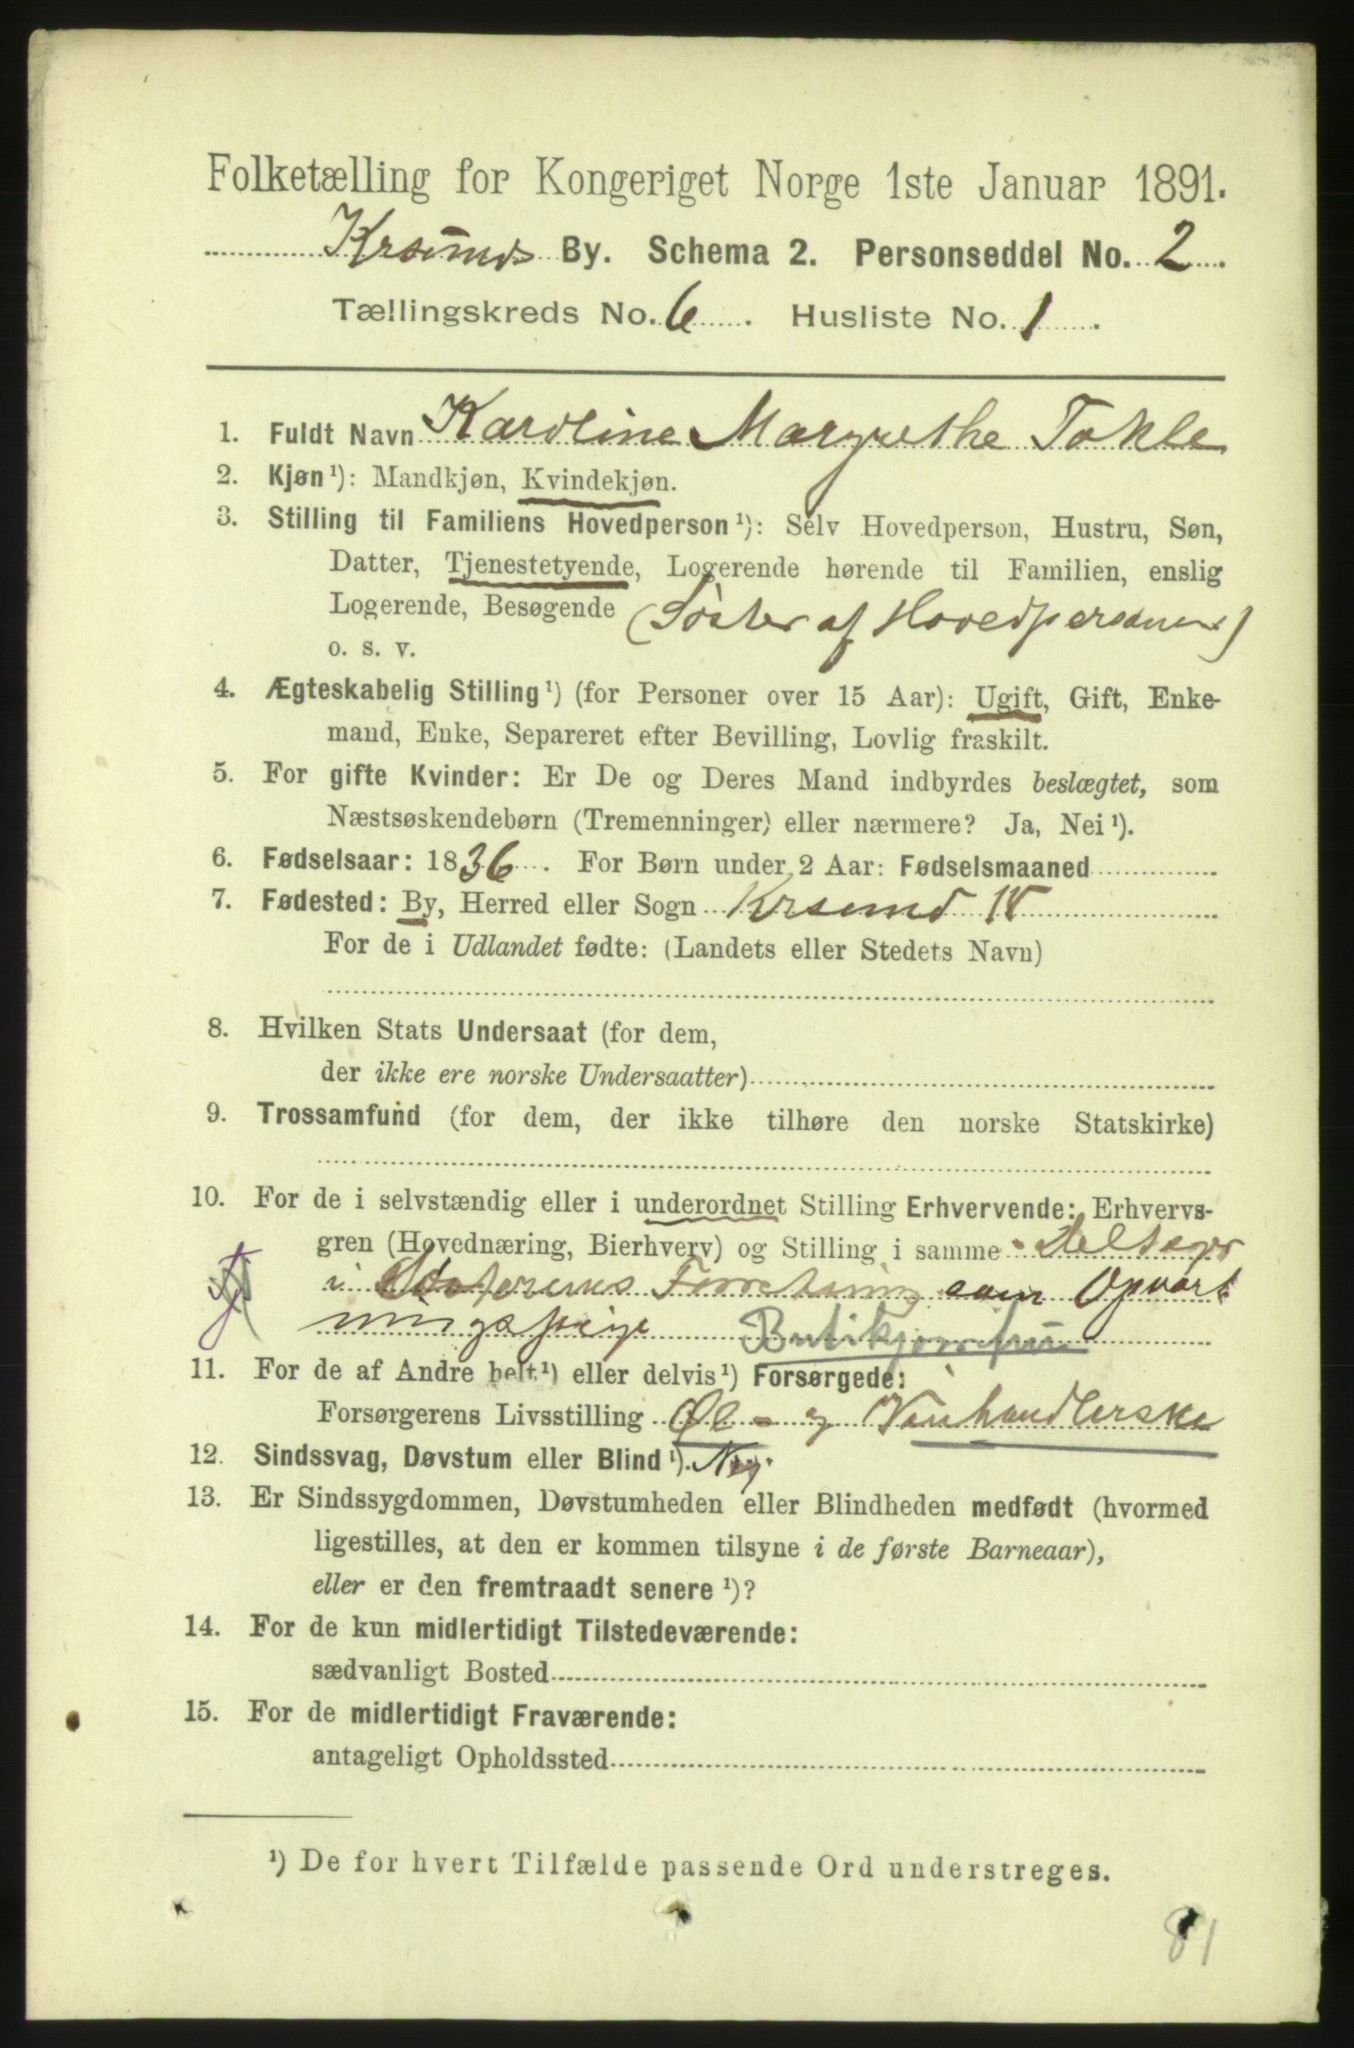 Folketælling for Kongeriget Norge 1ste Januar 1891.
Krsunds By. Schema 2. Personseddel No. 2.
Tællingskreds No. 6. Husliste No. 1.
1. Fuldt Navn Karoline Margrethe Takle
2. Kjøn ¹): Mandkjøn, Kvindekjøn.
3. Stilling til Familiens Hovedperson ¹): Selv Hovedperson, Hustru, Søn,
Datter, Tjenestetyende, Logerende hørende til Familien, enslig
Logerende, Besøgende (Søster af Hovedpersonen)
o. s. v.
4. Ægteskabelig Stilling ¹) (for Personer over 15 Aar): Ugift, Gift, Enke-
mand, Enke, Separeret efter Bevilling, Lovlig fraskilt.
5. For gifte Kvinder: Er De og Deres Mand indbyrdes beslægtet, som
Næstsøskendebørn (Tremenninger) eller nærmere? Ja, Nei ¹).
6. Fødselsaar: 1836. For Børn under 2 Aar: Fødselsmaaned
7. Fødested: By, Herred eller Sogn Krsund
For de i Udlandet fødte: (Landets eller Stedets Navn)
8. Hvilken Stats Undersaat (for dem,
der ikke ere norske Undersaatter)
9. Trossamfund (for dem, der ikke tilhøre den norske Statskirke)
10. For de i selvstændig eller i underordnet Stilling Erhvervende: Erhvervs-
gren (Hovednæring, Bierhverv) og Stilling i samme Deltager
i Søsterens Forretning som Opvart
ningspige
11. For de af Andre helt ¹) eller delvis ¹) Forsørgede:
Forsørgerens Livsstilling Øl- og Vinhandlerske
12. Sindssvag, Døvstum eller Blind ¹). Nej.
13. Er Sindssygdommen, Døvstumheden eller Blindheden medfødt (hvormed
ligestilles, at den er kommen tilsyne i de første Barneaar),
eller er den fremtraadt senere ¹)?
14. For de kun midlertidigt Tilstedeværende:
sædvanligt Bosted
15. For de midlertidigt Fraværende:
antageligt Opholdssted
¹) De for hvert Tilfælde passende Ord understreges.
81